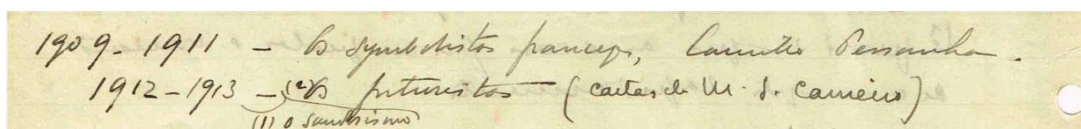 1909-1911 – Os symbolistas francezes, Camillo Pessanha.
1912-1913 – (2) Os futuristas (cartas de M. S. Carneiro)
(1) O saudosismo